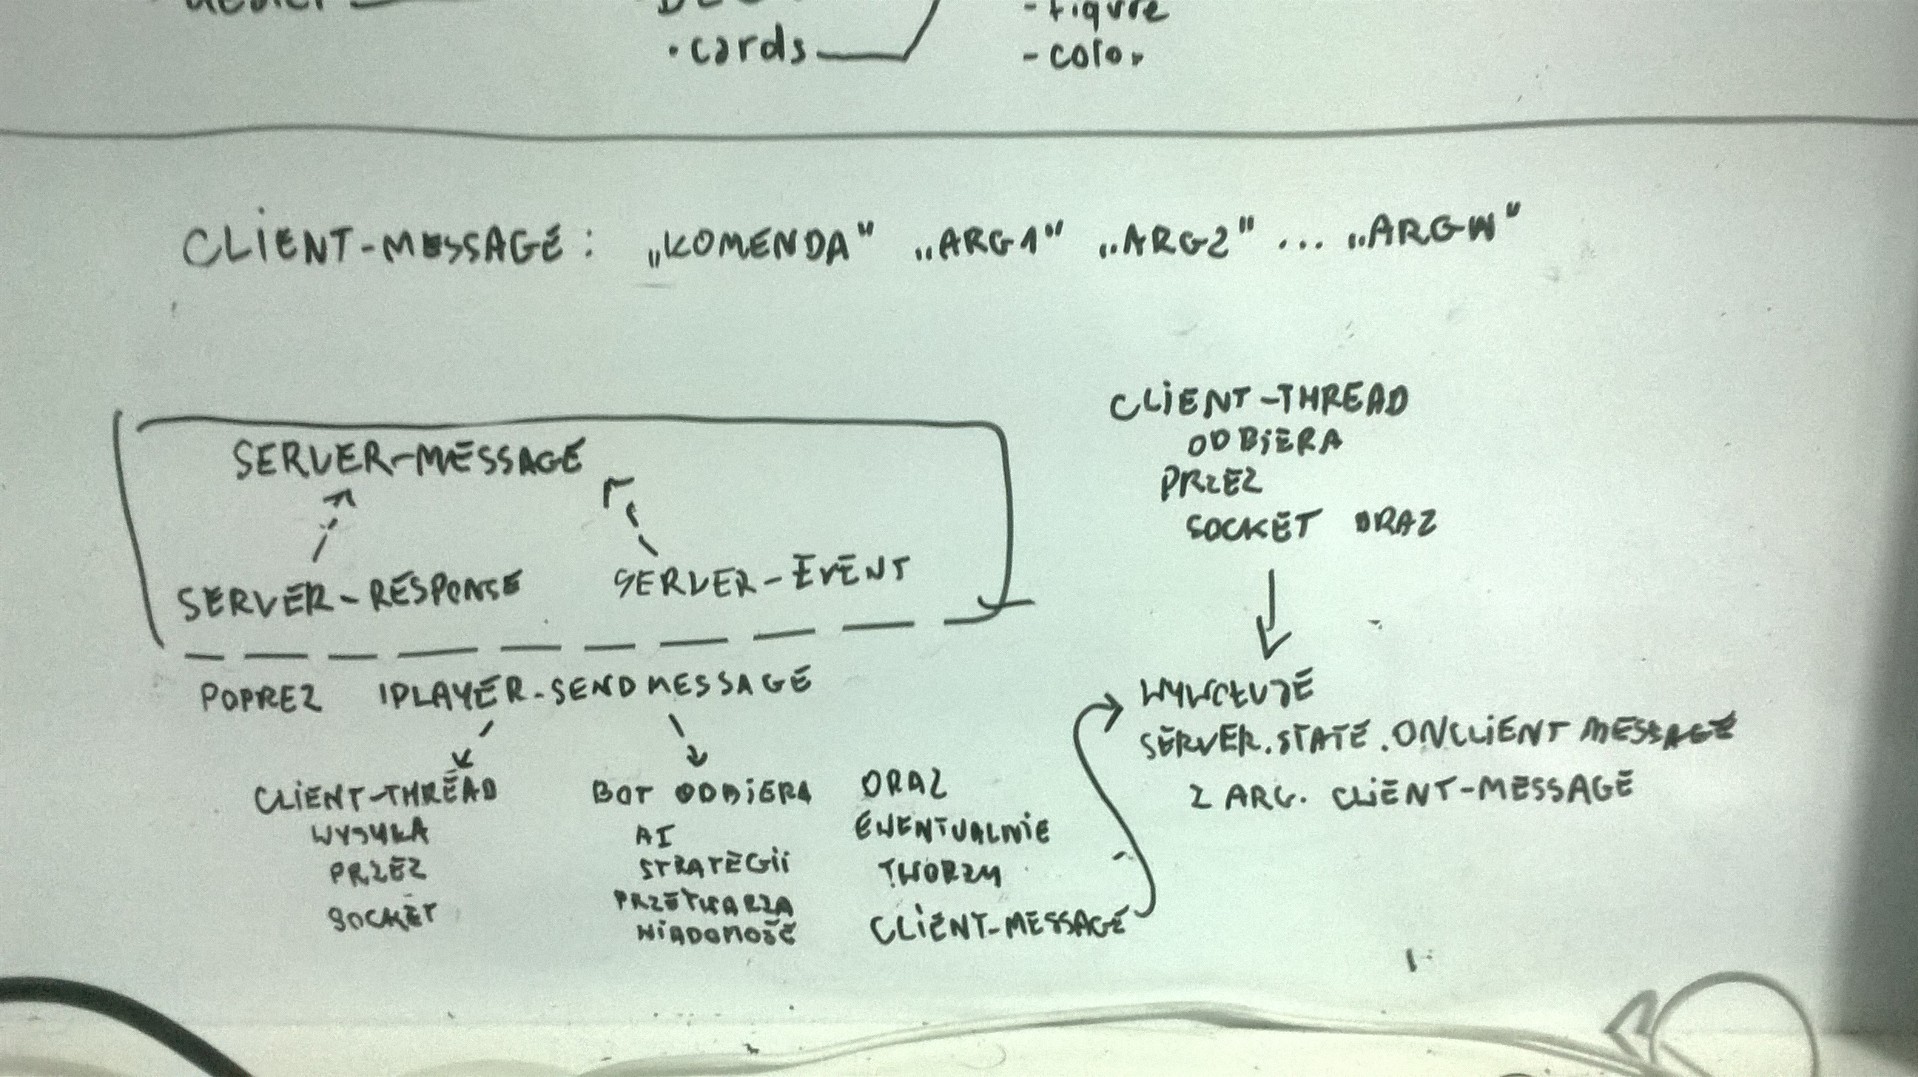 • cards
- figure
- color
CLIENT-MESSAGE: „KOMENDA" „ARG1" „ARG2" ... „ARGN"
SERVER-MESSAGE
SERVER-RESPONSE
SERVER-EVENT
POPRZEZ IPLAYER.SENDMESSAGE
CLIENT-THREAD
WYSYŁA
PRZEZ
SOCKET
BOT ODBIERA
AI
STRATEGII
PRZETWARZA
WIADOMOŚĆ
ORAZ
EWENTUALNIE
TWORZY
CLIENT-MESSAGE
CLIENT-THREAD
ODBIERA
PRZEZ
SOCKET ORAZ
WYWOŁUJE
SERVER.STATE.ONCLIENTMESSAGE
Z ARG. CLIENT-MESSAGE